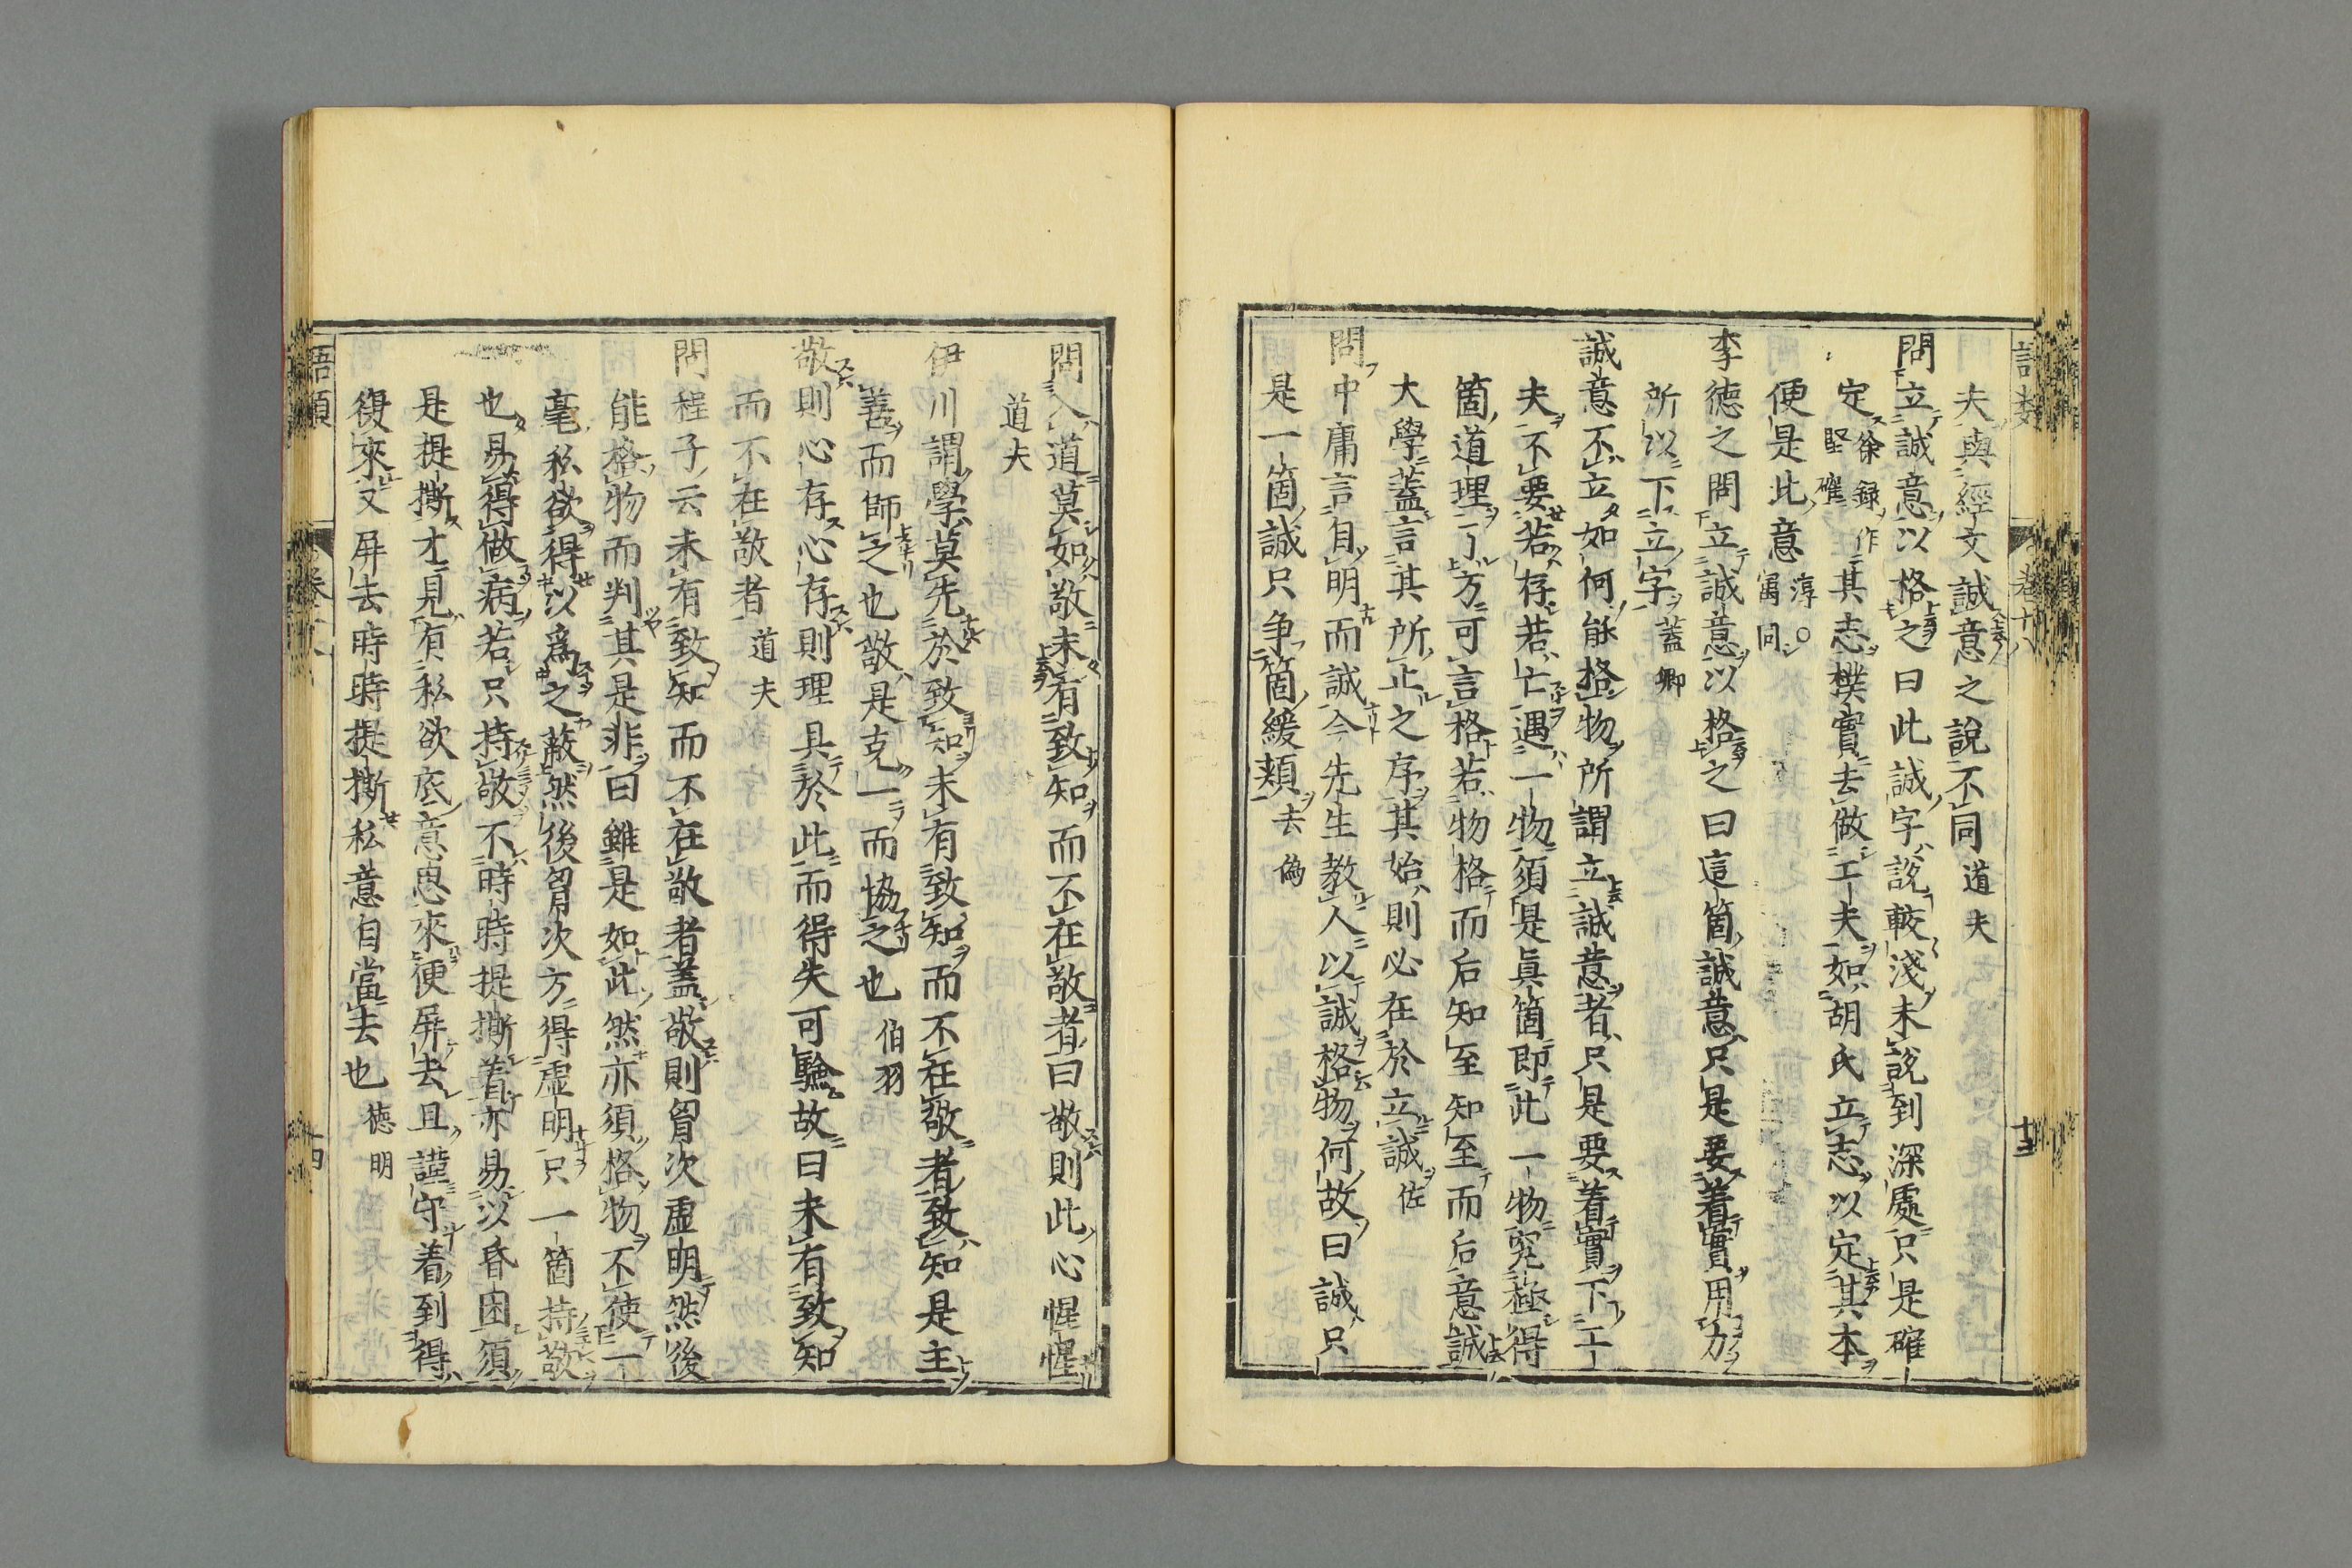 夫與經文誠意之說不同道夫
問立誠意以格之曰此誠字說較淺未說到深處只是確
定徐録作堅確其志樸實去做工夫如胡氏立志以定其本
便是此意淳○㝢同
李德之問立誠意以格之曰這箇誠意只是要着實用力
所以下立字蓋卿
誠意不立如何能格物所謂立誠意者只是要着實下工
夫不要若存若亡遇一物須是眞箇即此一物究極得
箇道理了方可言格若物格而后知至知至而后意誠
大學蓋言其所止之序其始則必在於立誠佐
問中庸言自明而誠今先生教人以誠格物何故曰誠只
是一箇誠只争箇緩頬去偽
語類
卷十八
十三
問入道莫如敬未有致知而不在敬者曰敬則此心惺惺
道夫
伊川謂學莫先於致知未有致知而不在敬者致知是主
善而師之也敬是克一而協之也伯羽
敬則心存心存則理具於此而得失可驗故曰未有致知
而不在敬者道夫
問程子云未有致知而不在敬者蓋敬則胷次虛明然後
能格物而判其是非曰雖是如此然亦須格物不使一
毫私欲得以爲之蔽然後胷次方得虛明只一箇持敬
也易得做病若只持敬不時時提撕着亦易以昏困須
是提撕才見有私欲底意思來便屏去且謹守着到得
復來又屏去時時提撕私意自當去也徳明
語類
卷十八
十四